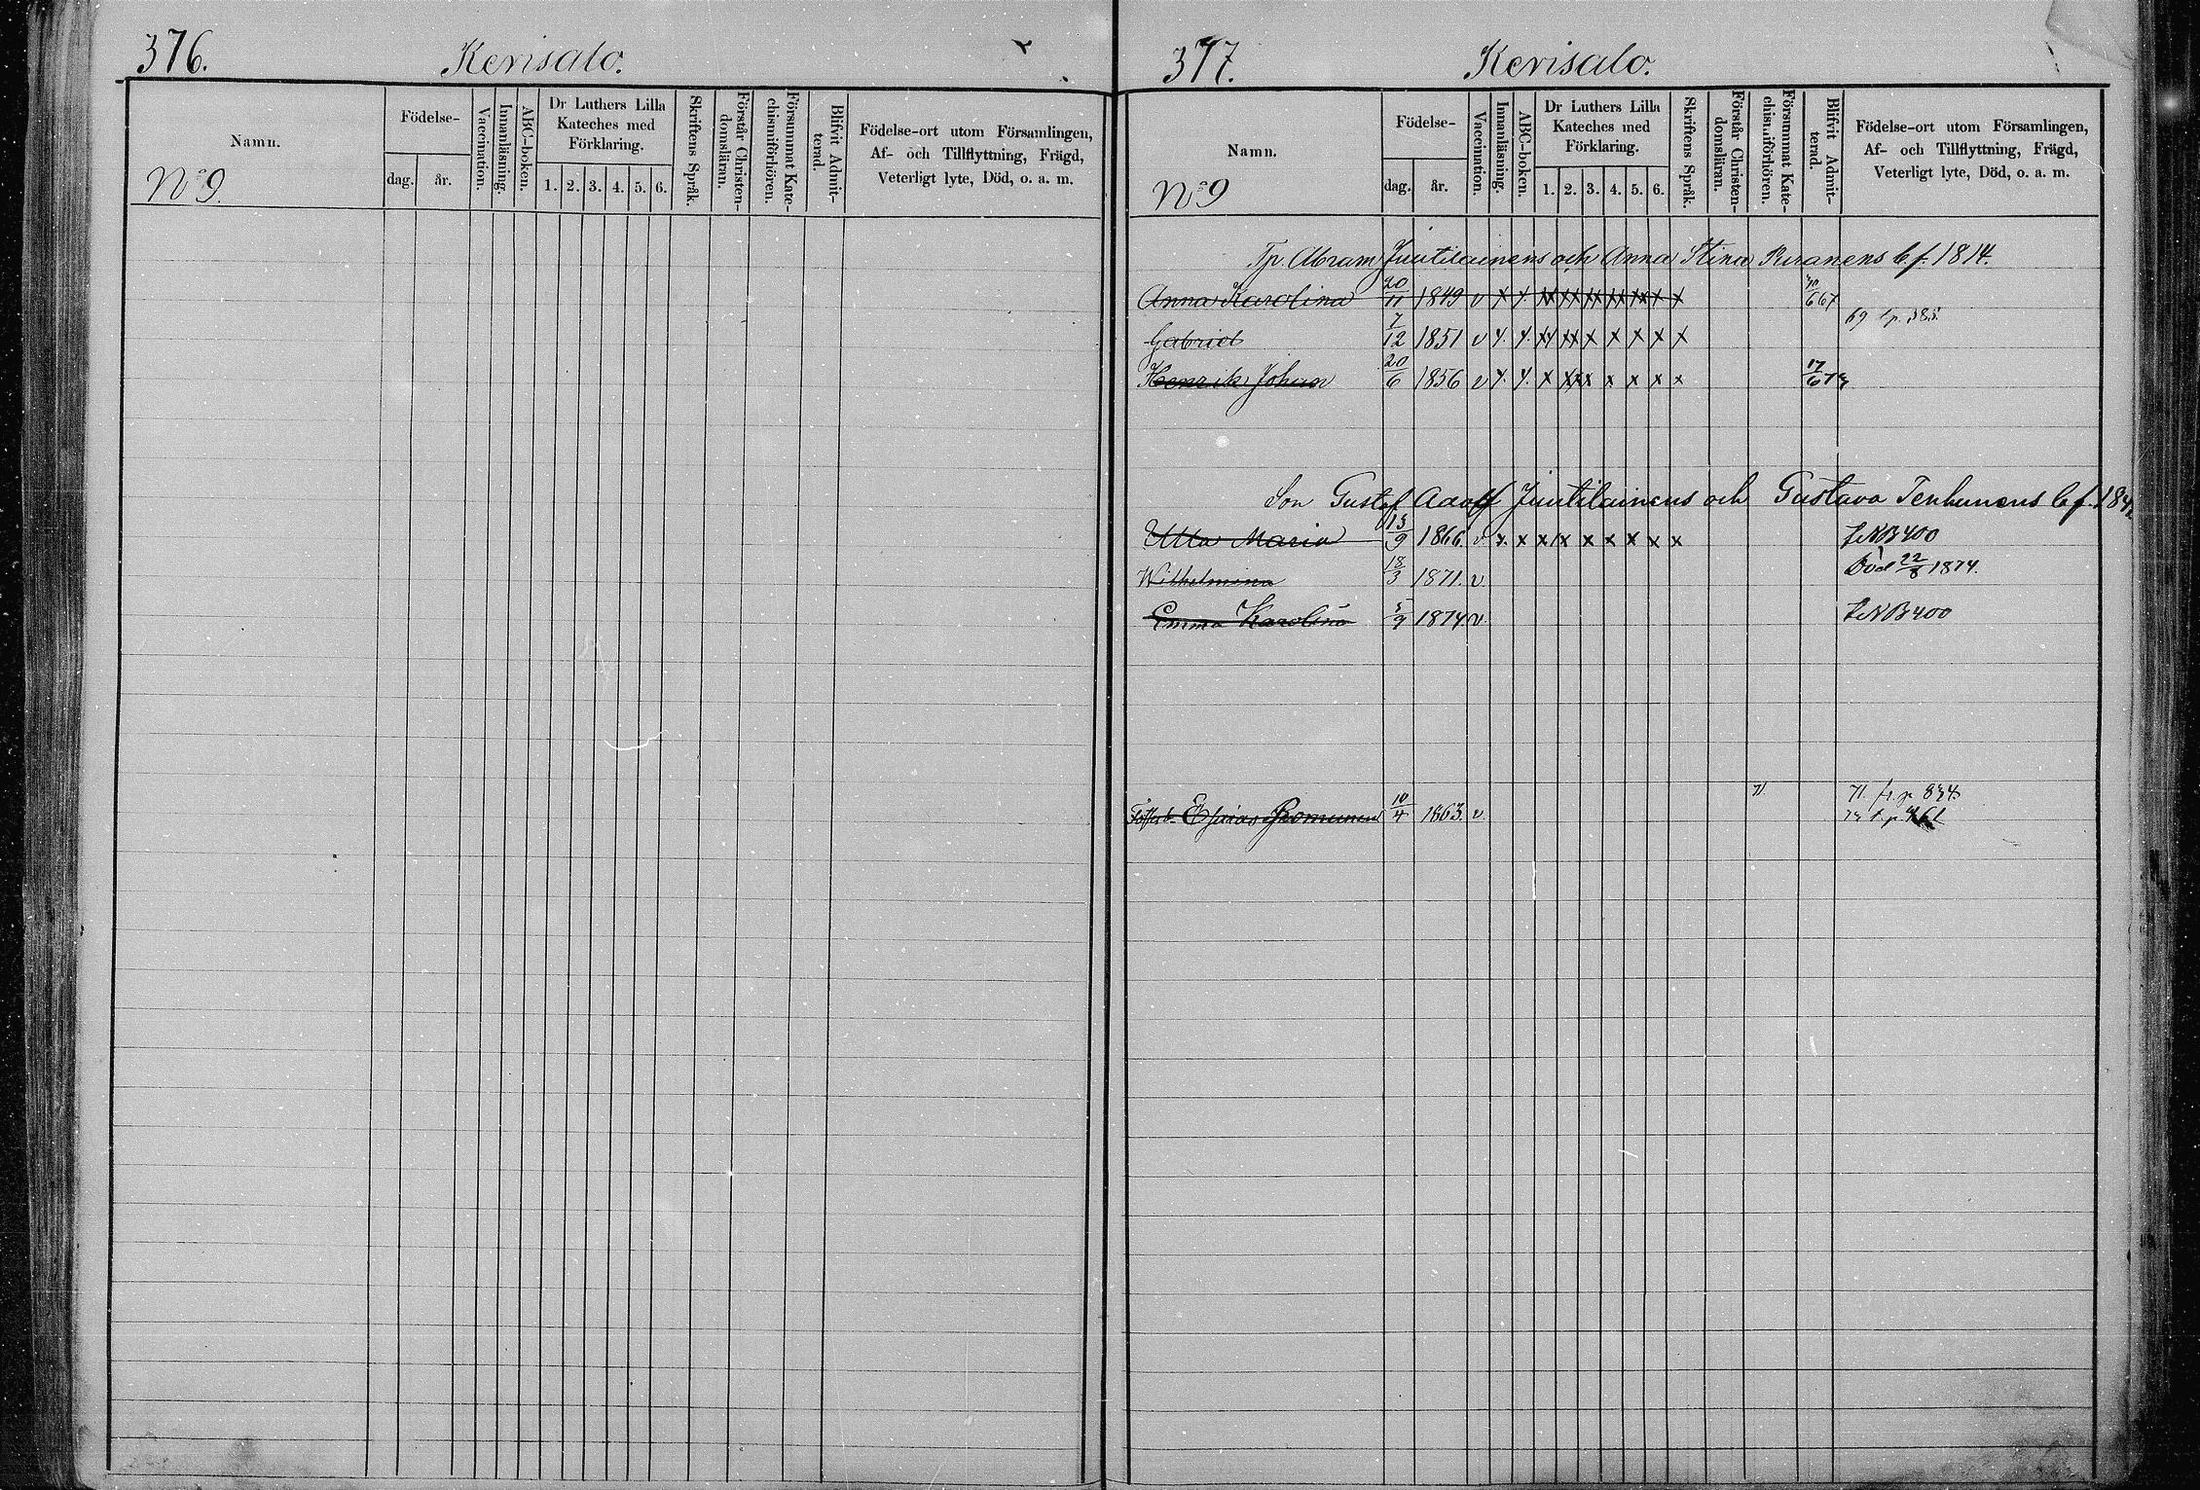 376. Kerisalo.
Namn.
No 9.
Födelse-
dag. år.
Vaccination.
Innanläsning.
ABC-boken.
Dr Luthers Lilla Kateches med Förklaring.
1. 2. 3. 4. 5. 6.
Skriftens Språk.
Förstår Christen-domsläran.
Försummat Kate-chismiförhören.
Blifvit Admit-terad.
Födelse-ort utom Församlingen,
Af- och Tillflyttning, Frägd,
Veterligt lyte, Död, o. a. m.
377. Kerisalo.
Namn.
No 9
Födelse-
dag. år.
Vaccination.
Innanläsning.
ABC-boken.
Dr Luthers Lilla Kateches med Förklaring.
1. 2. 3. 4. 5. 6.
Skriftens Språk.
Förstår Christen-domsläran.
Försummat Kate-chismiförhören.
Blifvit Admit-terad.
Födelse-ort utom Församlingen,
Af- och Tillflyttning, Frägd,
Veterligt lyte, Död, o. a. m.
Abram Juutilainens och Anna Stina b. f. 1814.
Anna Karolina 20/11 1849 v x x xx xx xx xx xx x x
Gabriel 7/12 1851 v x. x. xx xx x x x x x
Henrik Johan 20/6 1856 v x. x. x xx x x x x x 17/6 73
Son Gustaf Adolf Juutilainens och Gustava Tenhunens b. f.
Ulla Maria 13/9 1866. v x. x x x x x x x x NB 400
Wilhelmina 18/3 1871. v Död 22/8 1874.
Emma Karolina 5/9 1874 v NB 400
Esaias 10/4 1863. v. 71 71. fr. p. 834